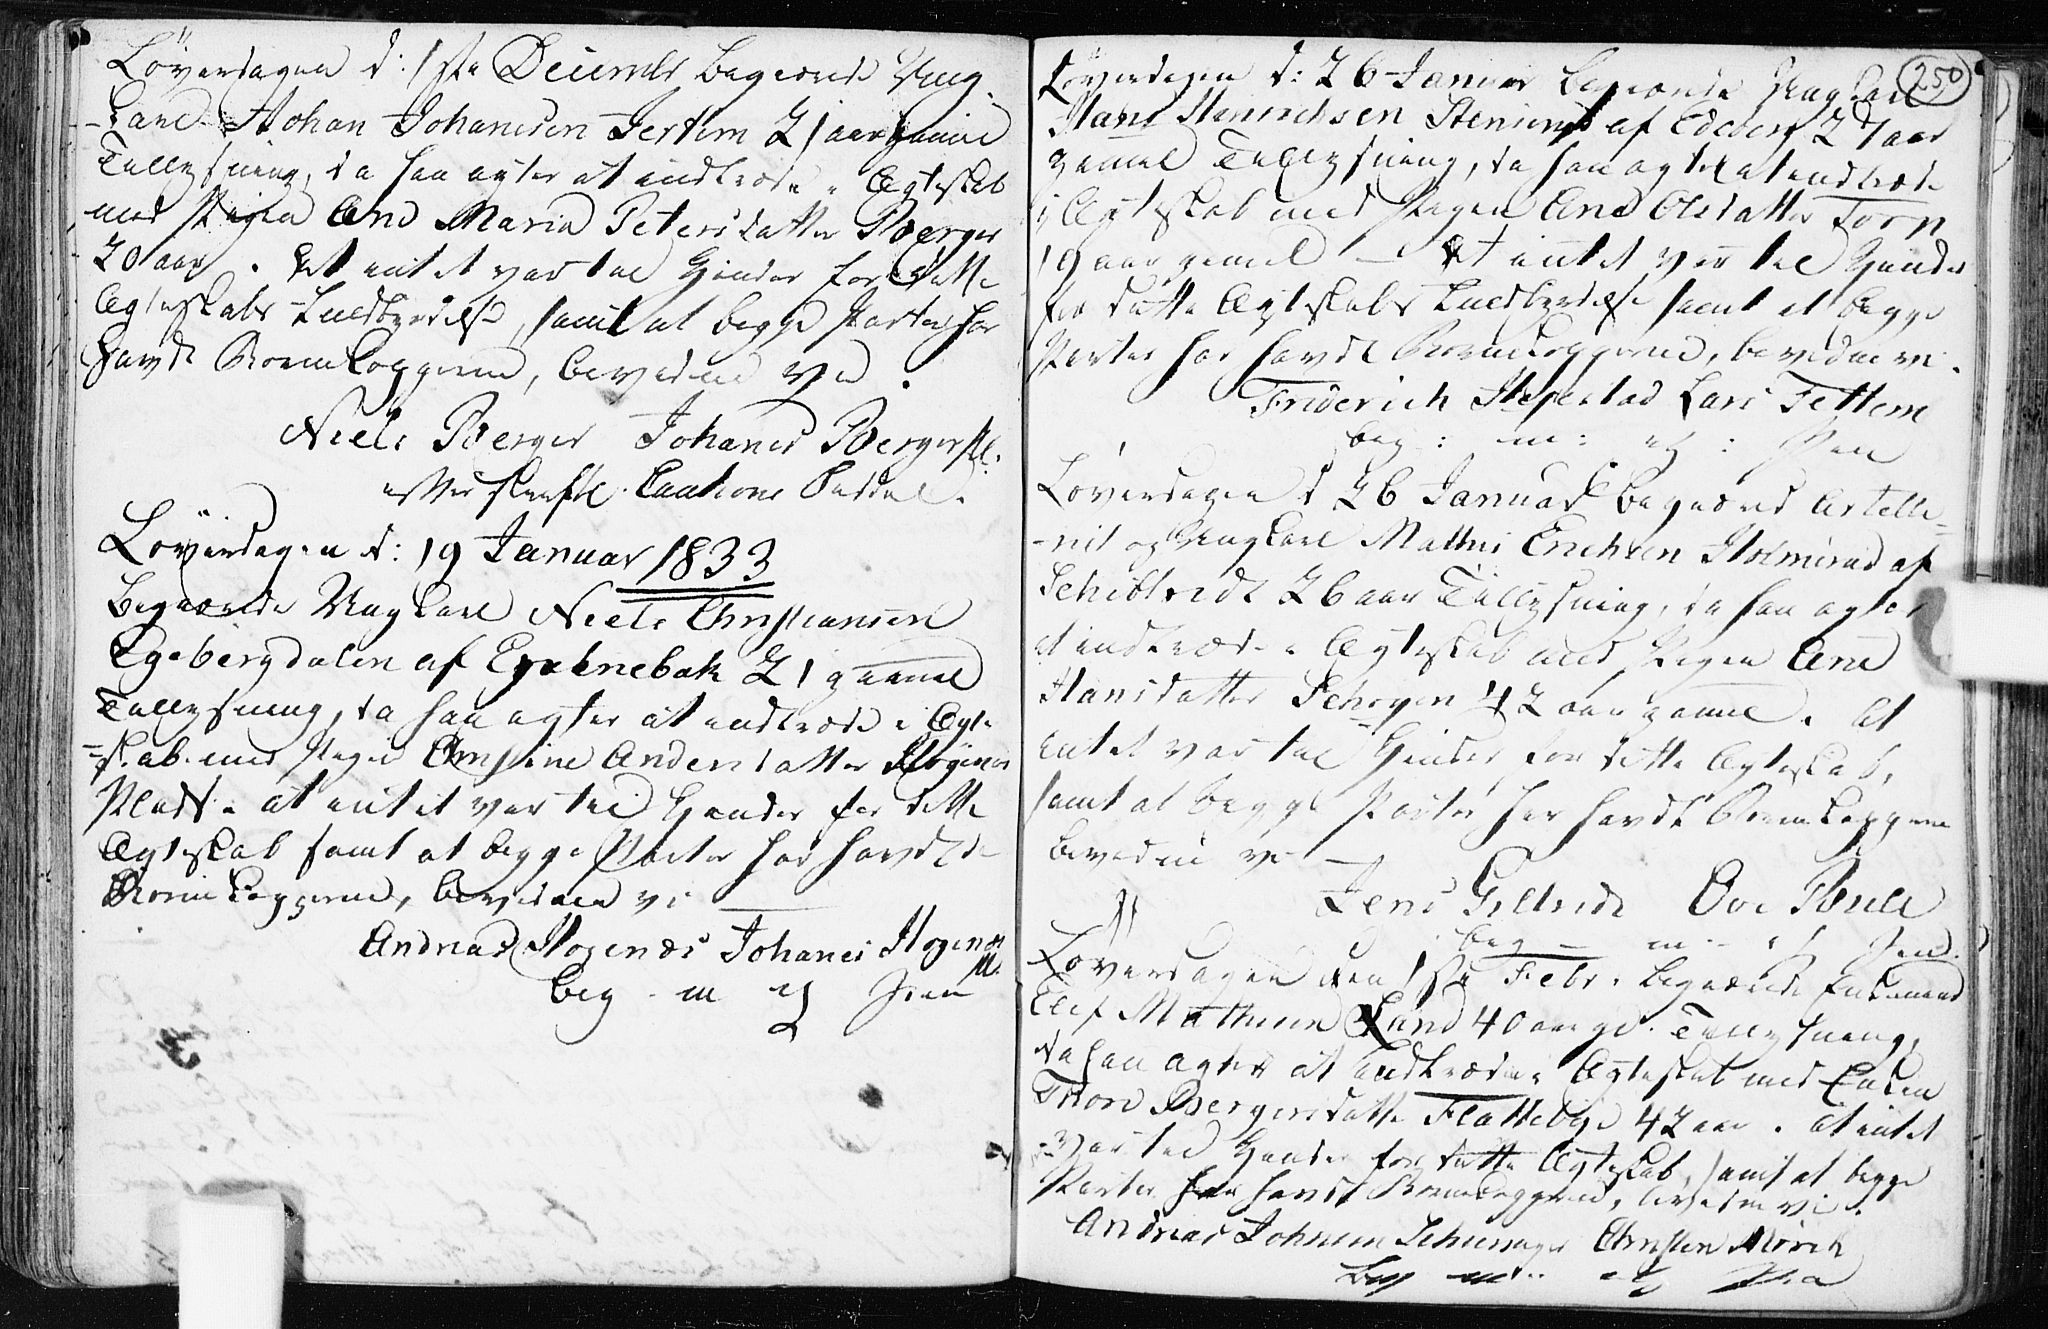 Löverdagen d: 1ste Decembr begierede Ung-
-karl Johan Johanesen Jertem 21 aar gamel
Tillysning, da han agter at indtræde i Ægteskab
med Pigen Ane Maria Petersdatter Berger
20 aar. At intet var til Hinder for dette
Ægteskabs Fuldbyrdelse, samt at begge Parter har
havdt Bornekopperne, bevidne vi.
Niels Berger Johanes Berger
efter skriftl. Cautions Seddel.
Löverdagen d: 19 Januar 1833
begierede Ungkarl Niels Christiansen
Egebergdalen af 21 gamel
Tillysning, da han agter at indtræde i Ægte-
=skab med Pigen Christine Andersdatter Högenes
Plads. at intet var til Hinder for dette
Ægteskab samt at begge Parter har havdt de
Bornekopperne, bevidner vi
Andreas Hogenæs Johanes Hogenæs
beg m P Pen
250
Löverdagen d: 26 Januar begierede Ungkarl
Hans Henrichsen af Edeberg 27 aar
gamel Tillysning, da han agter at indtræde
i Ægteskab med Pigen Ane Olsdatter Torp
19 aar gamel – At intet var til Hinder
for dette Ægteskabs Fuldbyrdelse samt at begge
Parter har havdt Bornekopperne, bevidne vi.
Friderich Lars Jettem
beg: m: P: Pen
Löverdagen d 26 Januar begierede Artelle-
-rist og Ungkarl Mathis Erichsen Holmsrud af
26 aar Tillysning, da han agter
at indtræde i Ægteskab med Pigen Ane
Hansdatter Schogen 42 aar gamel. At
intet var til Hinder for dette Ægteskab,
samt at begge Parter har havdt Bornekopperne
bevidne vi –
Jens Ove Bull
beg – m – P Pen.
Löverdagen den 1ste Febr. begierede Enkemand
Elef Mathisen Rand 40 aar gl. Tillysning,
da han agter at indtræde i Ægteskab med Enken
Thore Bergersdatter Flattebye 42 aar. at intet
var til Hinder for dette Ægteskab, samt at begge
Parter har havdt Bornekopperne, bevidne vi.
Andreas Johnsen Christen Mörch
beg m P Pen